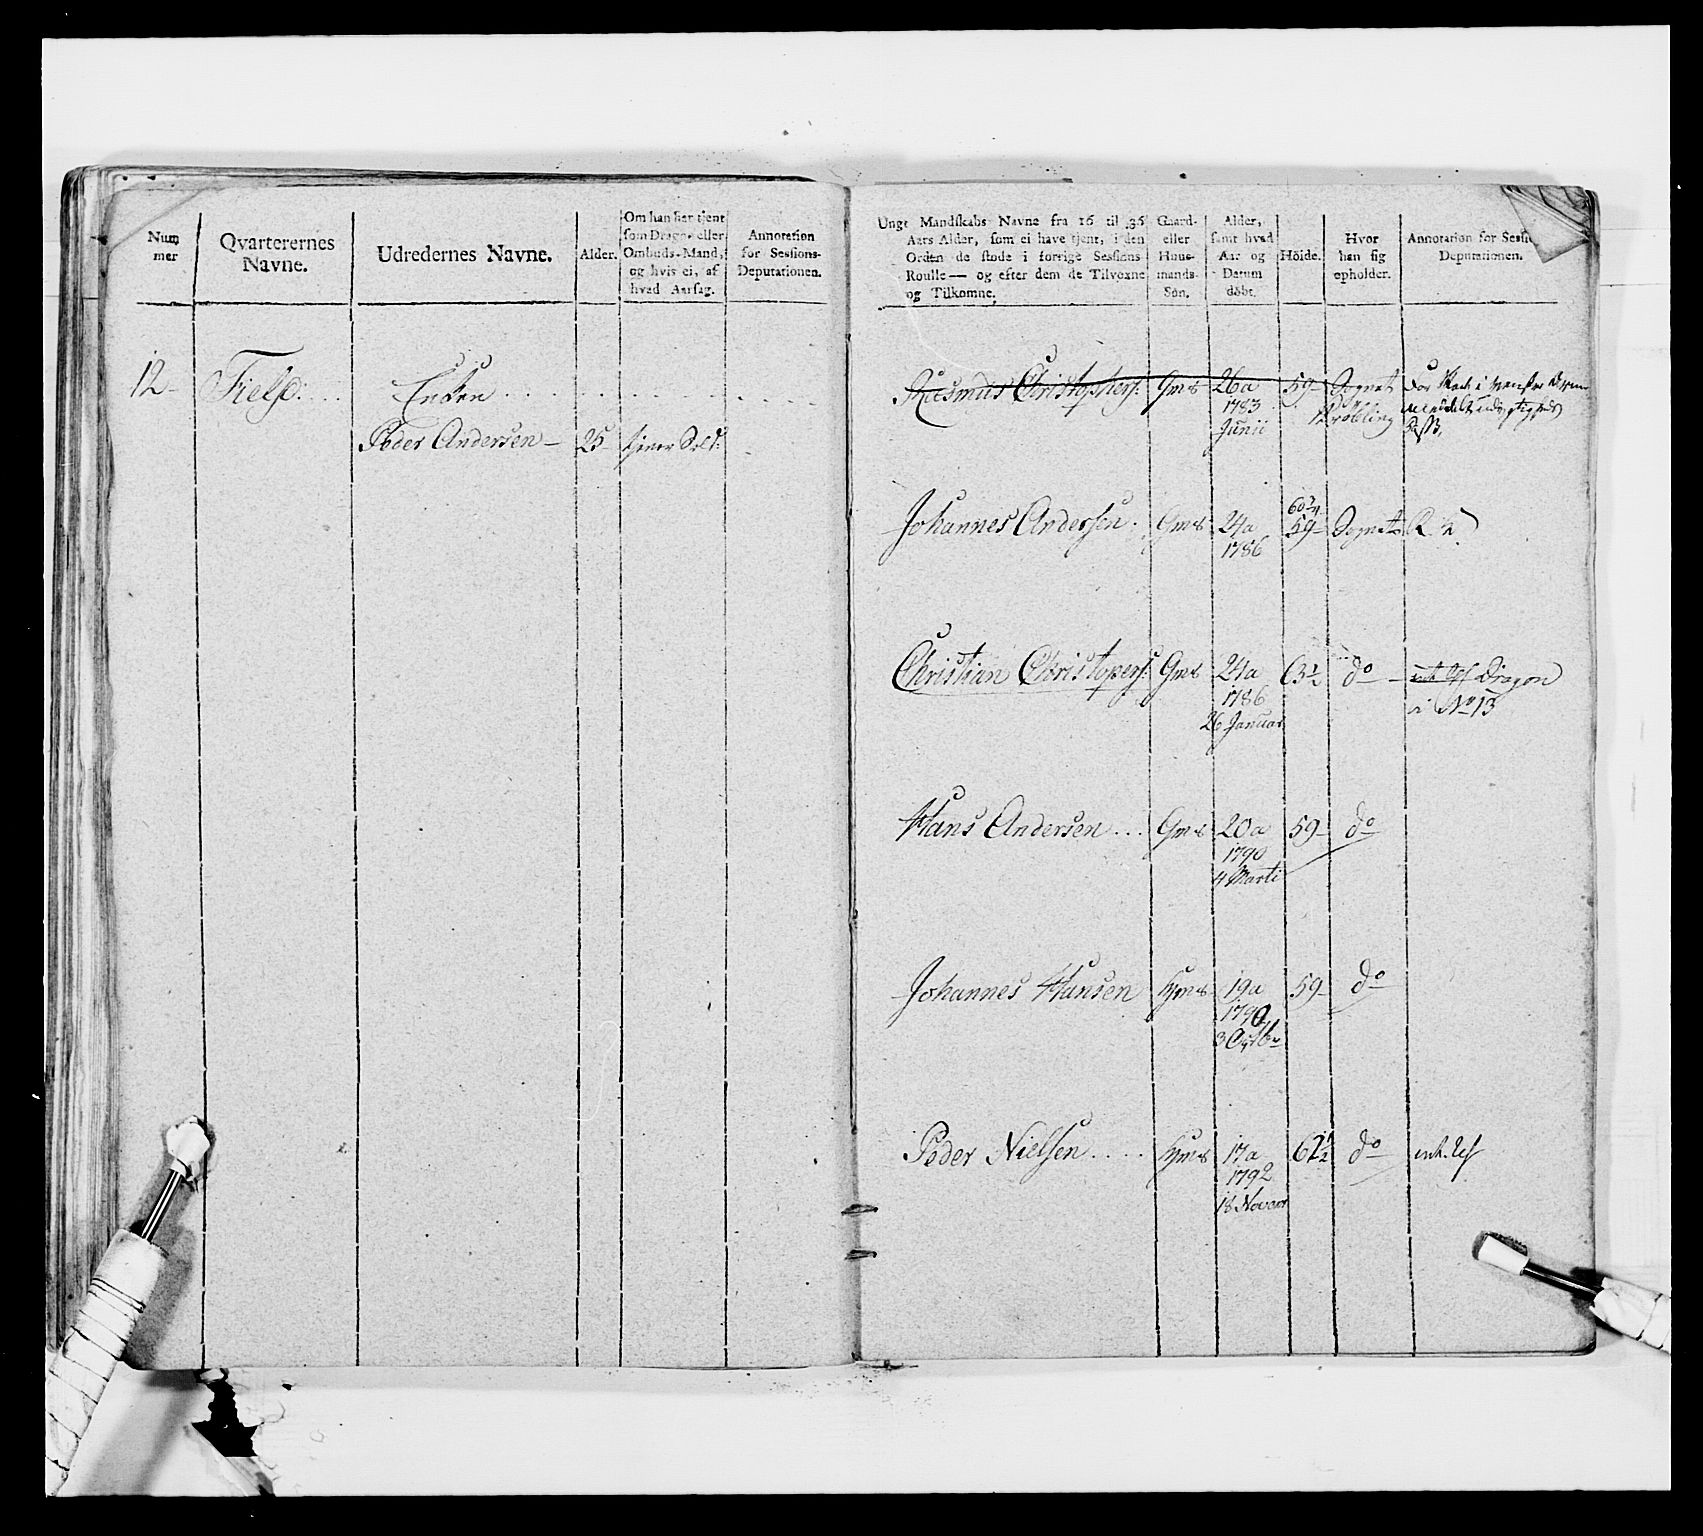 Num
mer
Qvarterernes
Navne.
Udredernes Navne.
Alder.
Om han har tjent
som Dragon eller
Ombuds-Mand,
og hvis ei, af
hvad Aarsag.
Annotation
for Sessions-
Deputationen.
12 Fielsd: Enken
Peder Andersen 25 tjener Sold:
Unge Mandskabs Navne fra 16 til 36
Aars Alder, som ei have tjent, i den
Orden de stode i forrige Sessions-
Roulle — og efter dem de Tilvoxne
og Tilkomne.
Gaard-
eller
Huus-
mands-
Søn.
Alder,
samt hvad
Aar og
Datum
døbt.
Høide.
Hvor
han sig
opholder.
Annotation for Sessions
Deputationen.
Rasmus Christophers: Gms 26a 59 Sognet
1783
Junii
Johannes Andersen. Gms 24a 59 Sognet
60 3/4
1786
Christian Christopers: Gms 24a 63 1/2 do Dragon
1786 i No 13
26 Januar
Hans Andersen... Gms 20a 59 do
1790
4 Marti
Johannes Hansen Hms 19a 59 do
1790
3
Peder Nielsen.... Hms 17a 61 1/2 do
1792
18 Novem